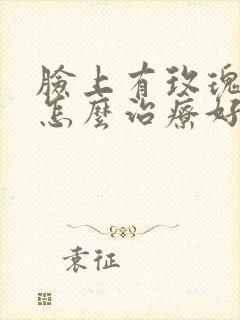 臉上有玫瑰
怎麼治療好
袁征